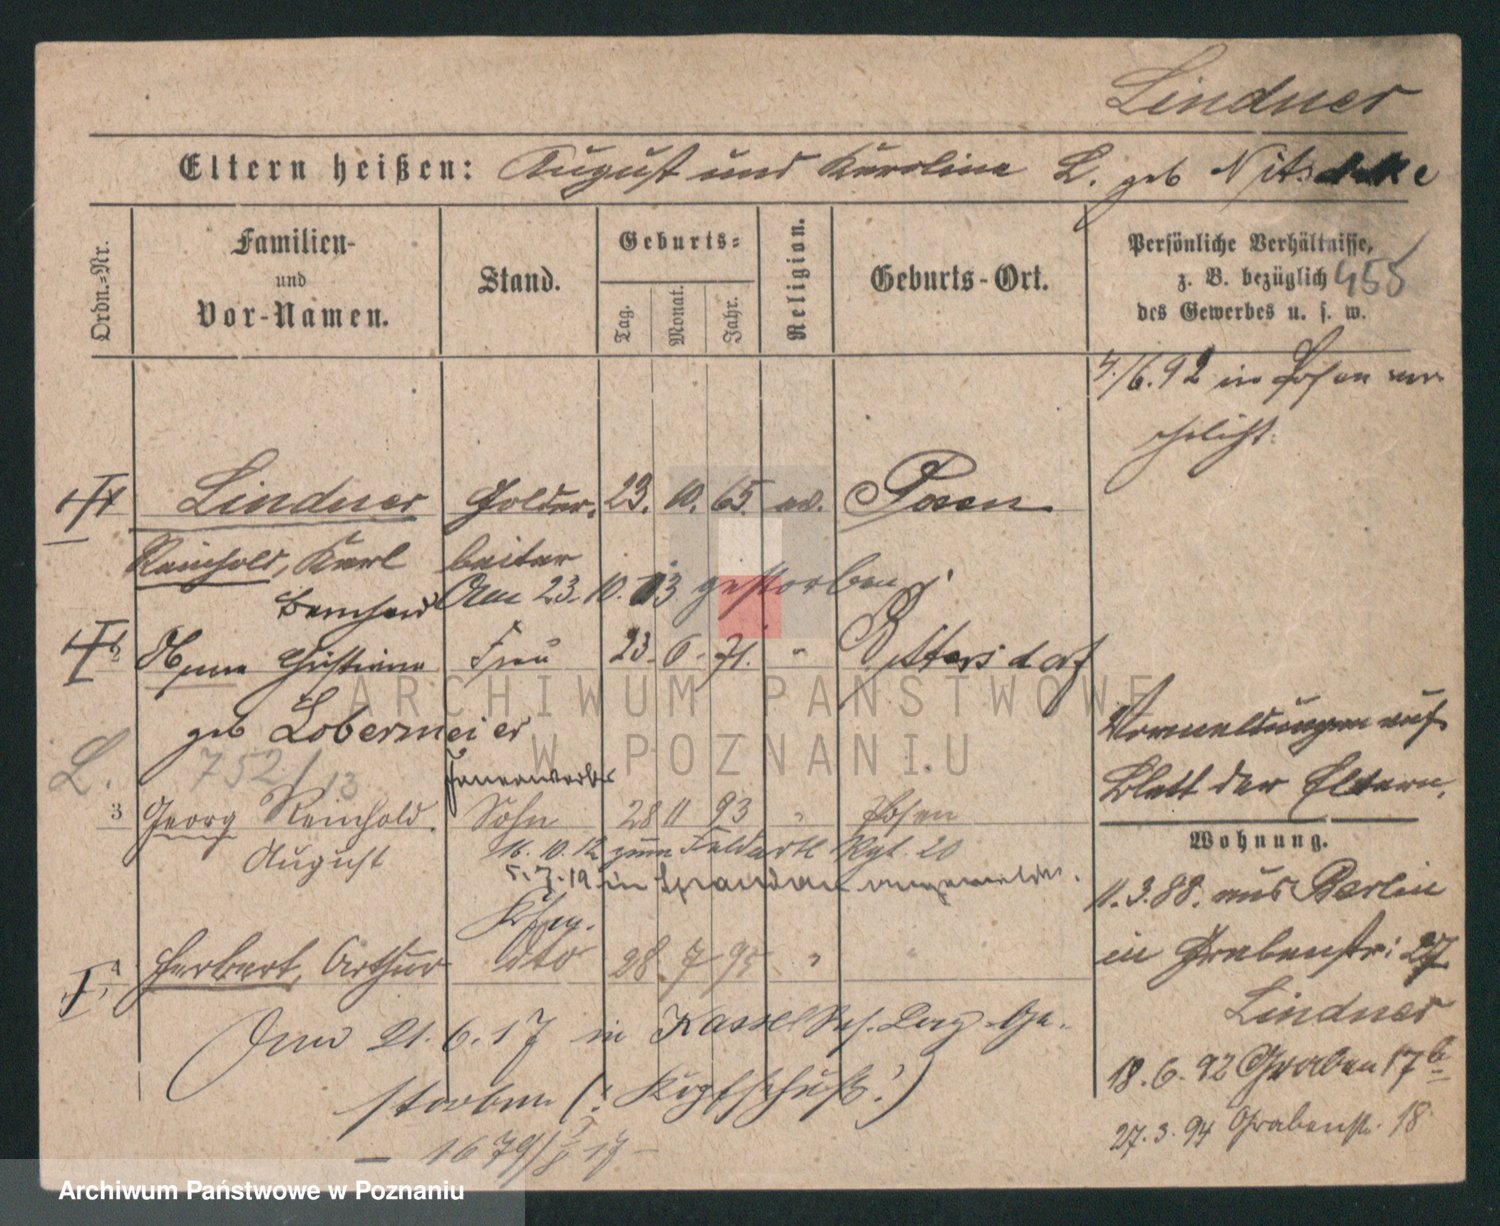 Lindner
Eltern heißen: August und Karoline L. geb Nitschke
Ordn.-Nr.
Familien-
und
Vor-Namen.
Stand.
Geburts-
Tag.
Monat.
Jahr.
Religion.
Geburts-Ort.
Persönliche Verhältnisse,
z. B. bezüglich
des Gewerbes u. s. w.
455
4/6.92 in Posen ver
ehelicht.
Lindner 23. 10. 65. ev. Posen
Reinhold, Karl beiter
Am 23. 10. 13 gestorben
2 Anna Christiane Frau 23. 6. 71. "
geb Lobermeier
L. 752/13
Vormeldungen auf
Blatt der Eltern.
3 Georg Reinhold Sohn 28 11 93 " Posen
August
16. 10. 12 zum Feldartl Rgt. 20
5.7.19 in Spandau angemeldet.
Wohnung.
11.3.88. aus Berlin
in Grabenstr: 27
4 Herbert, Arthur dto 28 7 95 " "
Am 21. 6. 17 in Kassel Ge-
storben (: Kopfschuß :)
Lindner
18. 6. 92 Graben 17b
27. 3. 94 Grabenstr. 18
ARCHIWUM PAŃSTWOWE
W POZNANIU
Archiwum Państwowe w Poznaniu